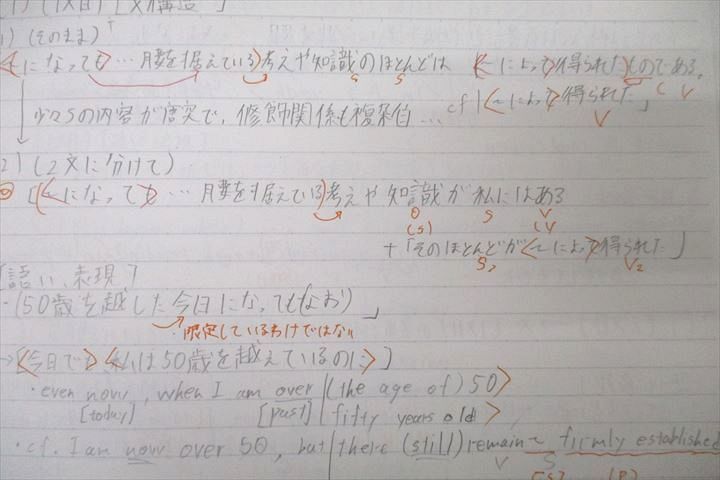 1) (そのまま)
<～になっても … 腰を据えている>考えや知識のほとんどは <～によって>得られたものである。
S S C V
少々Sの内容が唐突で、修飾関係も複雑… cf「<～によって>得られた」
V
2) (2文に分けて)
[<～になっても … 腰を据えている>考えや知識が私にはある
O S V
(S) (V)
+「そのほとんどが<～によって>得られた」
S₂ V₂
[語い、表現]
・(50歳を越した今日になっても(なお)」
・限定しているわけではない
→[<今日でも> <私は50歳を越えているのに>]
・even now, when I am over (the age of) 50>
[today] [past] fifty years old>
・cf. I am now over 50, but there (still) remain ~ firmly established
V S
[S] (P)